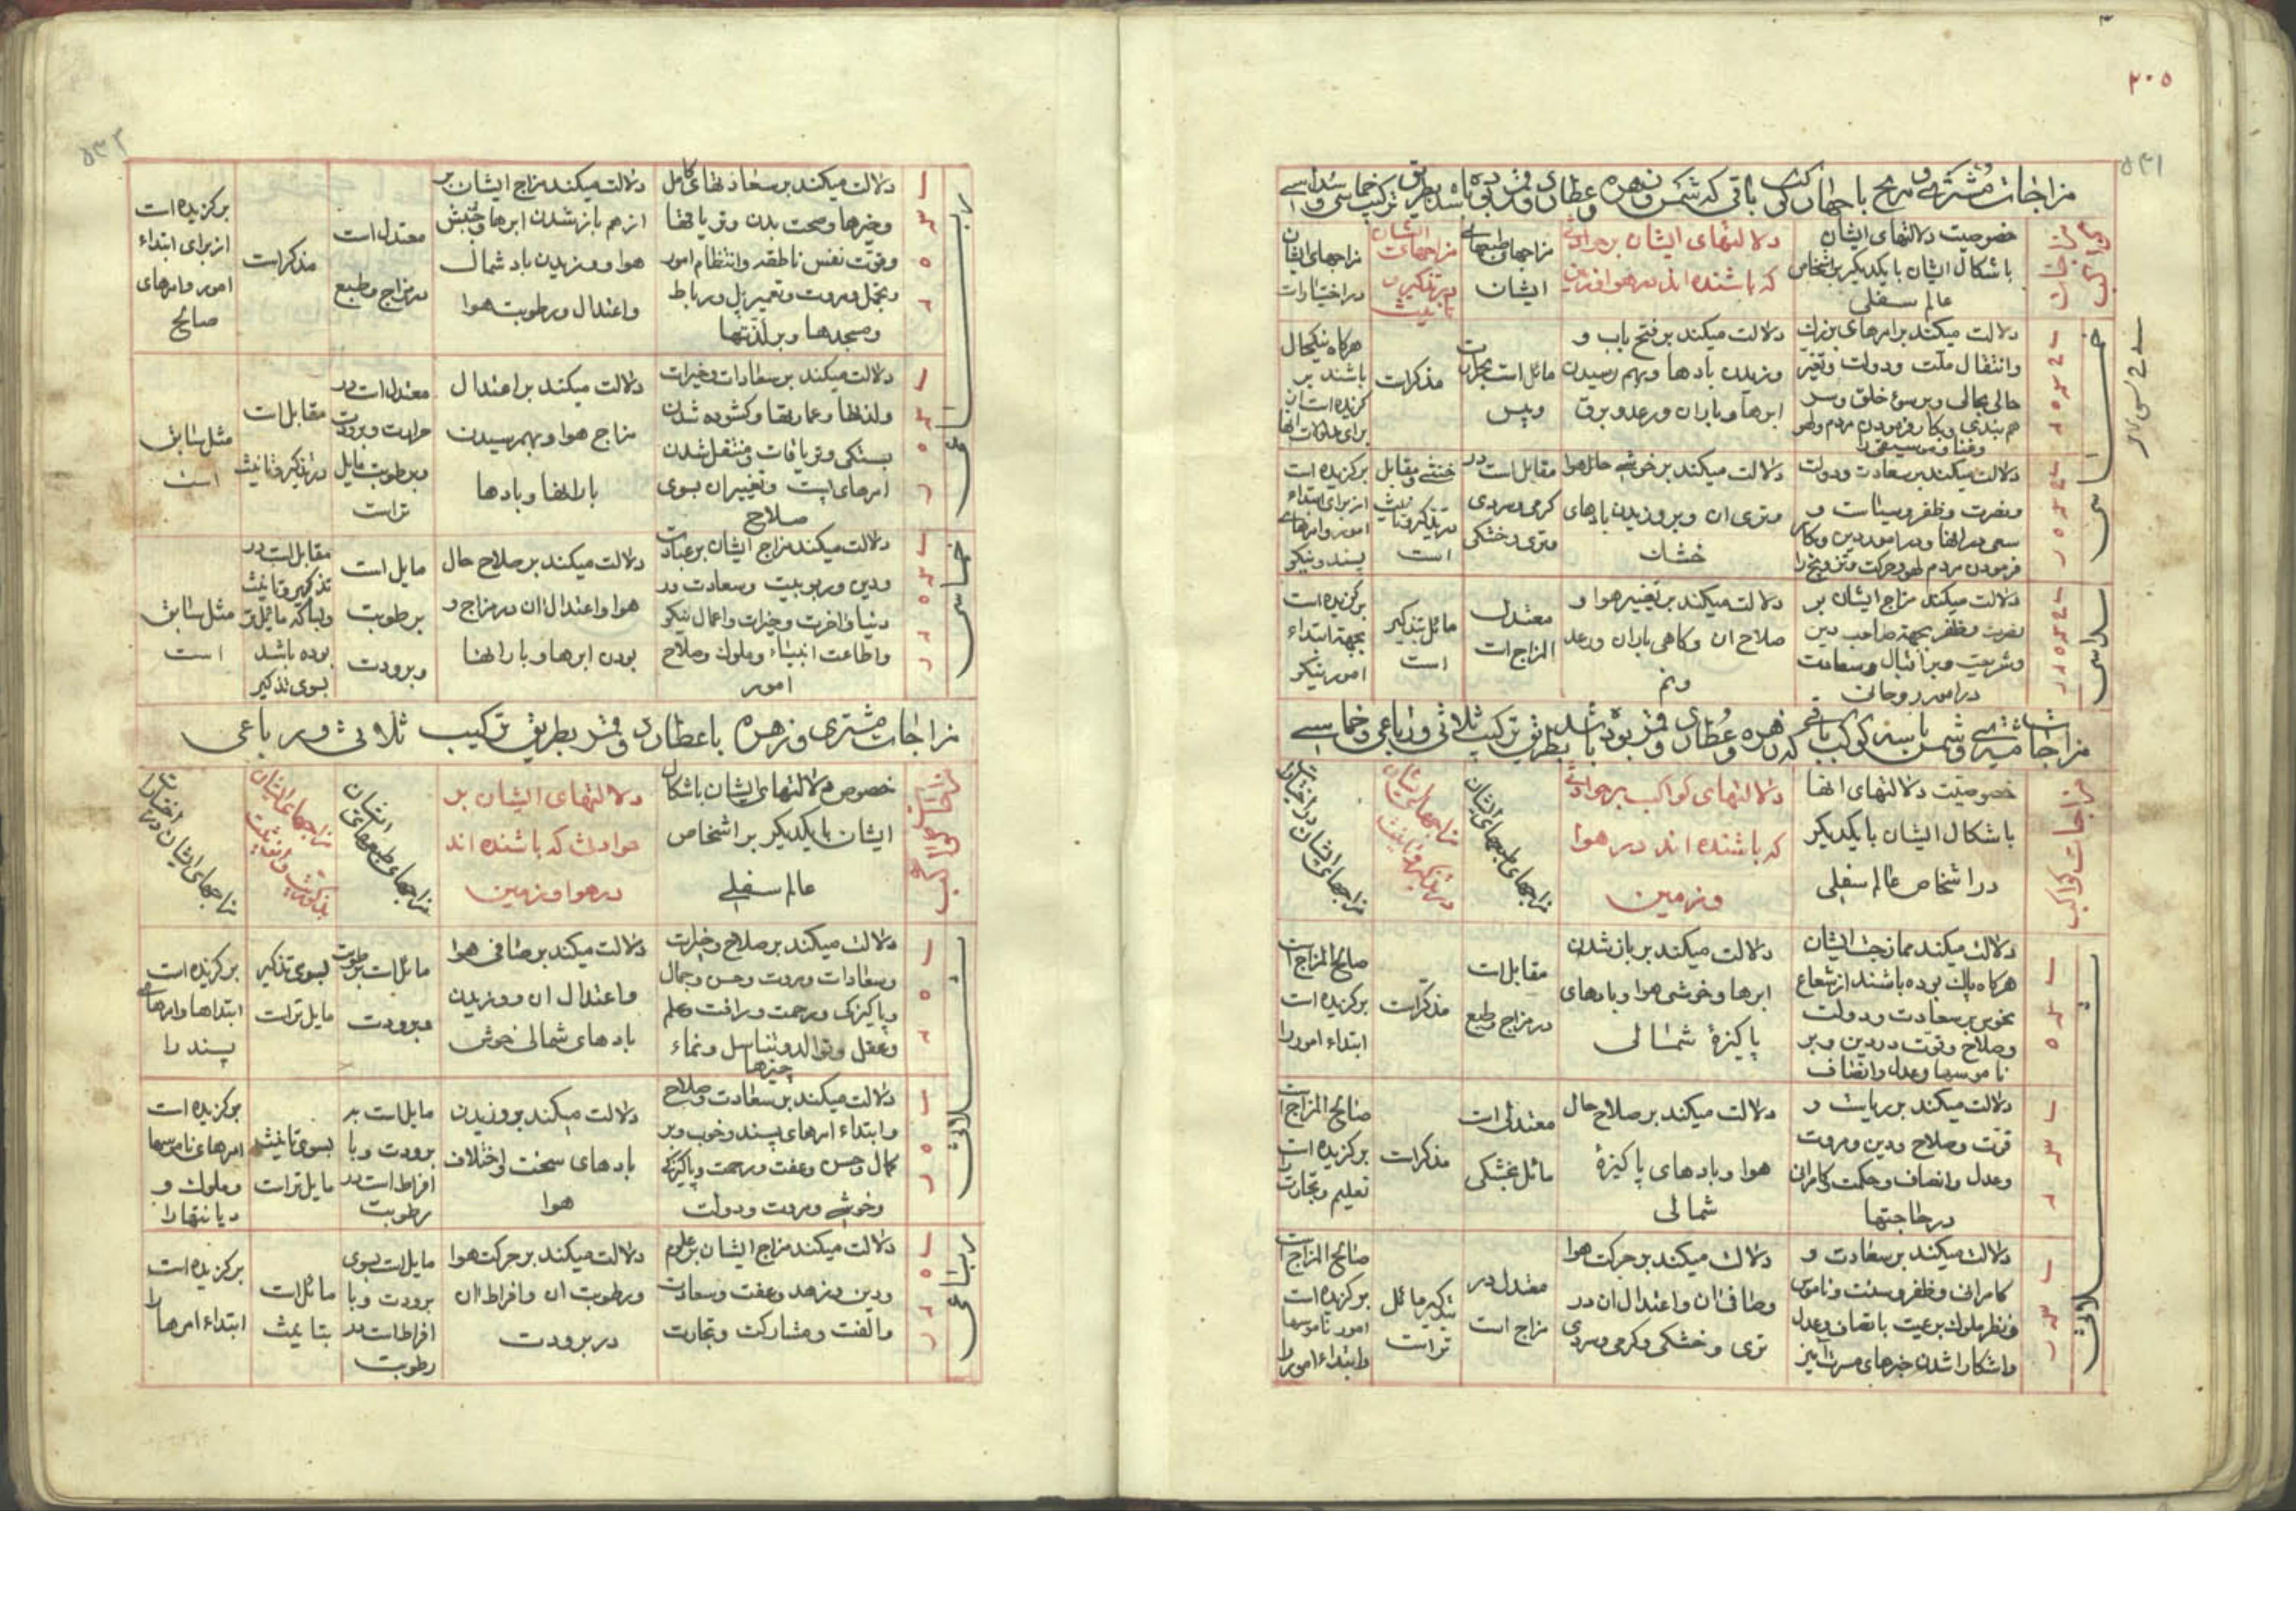 ۲۰۵
۵۳۱
مزاجات مشتری و مریخ با چهار کوکب باقی که شمس و زهره و عطارد و قمر بوده باشد بطریق ترکیب خماسی و سداسی
خصوصیت دلالتهای ایشان
باشکال ایشان بایکدیکر بر اشخاص
عالم سفلی
دلالتهای ایشان بر حوادثی
که باشنده اند در هوا و زمین
مزاجهای طبعهای
ایشان
مزاجهای ایشان
در تذکیر و
تانیث
مزاجهای ایشان
در اختیارات
خماسی
دلالت میکند بر امرهای بزرك
وانتقال ملت ودولت وتغیر
حالی بحالی وبر سوء خلق وسر
دلالت میکند بر فتح باب و
وزیدن بادها وبهم رسیدن
ابرها وباران ورعد وبرق
مائل است بحرارت
ویبس
مذکرات
هرکاه نیکحال
باشند بر
کزیده است از
دلالت میکند بر سعادت ودولت
ونصرت وظفر وسیاست و
سعی در انها ودر امور دین وبکار
فرمودن مردم
دلالت میکند بر خوشی حال هوا
وتری ان وبر وزیدن بادهای
خشك
مقابل است در
کرمی وسردی
وتری وخشکی
خنثی ومقابل
در تذکیر وتانیث
است
برکزیده است
از برای ابتداء
امور وامرهای
پسند ونیکو
سداسی
دلالت میکند مزاج ایشان بر
نصرت وظفر بجهة صاحب دین
وشریعت وبر اقبال وسعادت
در امور روحانی
دلالت میکند بر تغییر هوا و
صلاح ان وکاهی باران ورعد
ونم
معتدل
المزاج است
مائل بتذکیر
است
برکزیده است
بجهة ابتداء
امور نیکو
مزاجات مشتری وشمس با سه کوکب باقی که زهره وعطارد وقمر بوده باشد بطریق ترکیب ثلاثی ورباعی وخماسی
مزاجات کواکب
خصوصیت دلالتهای انها
باشکال ایشان بایکدیکر
در اشخاص عالم سفلی
دلالتهای کواکب بر حوادثی
که باشنده اند در هوا
وزمین
مزاجهای طبعهای ایشان
مزاجهای ایشان
در تذکیر وتانیث
مزاجهای ایشان در اختیارات
ثلاثی
دلالت میکند ممازجت ایشان
هرکاه پاك بوده باشند از شعاع
نحوس بر سعادت ودولت
وصلاح وقوت در دین وبر
ناموسها وعدل وانصاف
دلالت میکند بر باز شدن
ابرها وخوشی هوا وبادهای
پاکیزهٔ شمالی
مقابل است
در مزاج وطبع
مذکرات
صالح المزاج است
برکزیده است
ابتداء امور را
دلالت میکند بر ریاست و
قوت وصلاح ودین ومروت
وعدل وانصاف وحکمت وکامرانی
در حاجتها
دلالت میکند بر صلاح حال
هوا وبادهای پاکیزهٔ
شمالی
معتدل است
مائل بخشکی
مذکرات
صالح المزاج است
برکزیده است
تعلیم وتجارت را
ثلاثی
دلالت میکند بر سعادت و
کامرانی وظفر وسنت وناموس
ونظر ملوك برعیت بانصاف وعدل
واشکارا شدن خبرهای مسرت آمیز
دلالت میکند بر حرکت هوا
وصافی ان واعتدال ان در
تری وخشکی وکرمی وسردی
معتدل در
مزاج است
بتذکیر مائل
تر است
صالح المزاج است
برکزیده است
امور ناموسها
وابتداء امور را
۵۳۲
رباعی
دلالت میکند بر سعادتهای کامل
وخیرها وصحت بدن وتریاقها
وقوت نفس ناطقه وانتظام امور
وتجمل ومروت وتعمیر پل ورباط
ومسجدها وبر لذتها
دلالت میکند مزاج ایشان بر
از هم باز شدن ابرها وجنبش
هوا ووزیدن باد شمال
واعتدال ورطوبت هوا
معتدل است
در مزاج وطبع
مذکرات
برکزیده است
از برای ابتداء
امور وامرهای
صالح
دلالت میکند بر سعادات وخیرات
ولذتها وعمارتها وکشوده شدن
بستکی وتریاقات ومنتقل شدن
امرهای پست وتغییر ان بسوی
صلاح
دلالت میکند بر اعتدال
مزاج هوا وبهم رسیدن
بارانها وبادها
معتدل است در
حرارت وبرودت
وبرطوبت مایل
تر است
مقابل است
در تذکیر وتانیث
مثل سابق
است
خماسی
دلالت میکند مزاج ایشان بر عبادت
ودین وربوبیت وسعادت در
دنیا واخرت وخیرات واعمال نیکو
واطاعت انبیاء وملوك وصلاح
امور
دلالت میکند بر صلاح حال
هوا واعتدال ان در مزاج و
بودن ابرها وبارانها
مایل است
برطوبت
وبرودت
مقابل است در
تذکیر وتانیث
وبسا که مایل تر
بوده باشد
بسوی تذکیر
مثل سابق
است
مزاجات مشتری وزهره با عطارد وقمر بطریق ترکیب ثلاثی ورباعی
خصوص دلالتهای ایشان باشکال
ایشان بایکدیکر بر اشخاص
عالم سفلی
دلالتهای ایشان بر
حوادث که باشنده اند
در هوا وزمین
مزاجهای طبعهای
ایشان
مزاجهای ایشان
مزاجهای ایشان در
اختیارات
ثلاثی
دلالت میکند بر صلاح وخیرات
وسعادات ومروت وحسن وجمال
وپاکیزکی ورحمت ورافت وعلم
وعقل وتوالد وتناسل ونماء
چیزها
دلالت میکند بر صافی هوا
واعتدال ان ووزیدن
بادهای شمالی خوش
مائل است برطوبت
وبرودت
بسوی تذکیر
مایل تر است
برکزیده است
ابتداها وامرهای
پسند را
دلالت میکند بر سعادت وصلاح
وابتداء امرهای پسند وخوب وبر
کمال وحسن وعفت ورحمت وپاکیزکی
وخوشی ومروت ودولت
دلالت میکند بر وزیدن
بادهای سخت واختلاف
هوا
مایل است بر
برودت وبا
افراط است در
رطوبت
بسوی تانیث
مایل تر است
برکزیده است
امرهای ناموسها
وملوك و
دیانتها را
رباعی
دلالت میکند مزاج ایشان بر علوم
ودین وزهد وعفت وسعادت
والفت ومشارکت وتجارت
دلالت میکند بر حرکت هوا
ورطوبت ان وافراط ان
در برودت
مایل است بسوی
برودت وبا
افراط است در
رطوبت
مائل است
بتانیث
برکزیده است
ابتداء امرها را